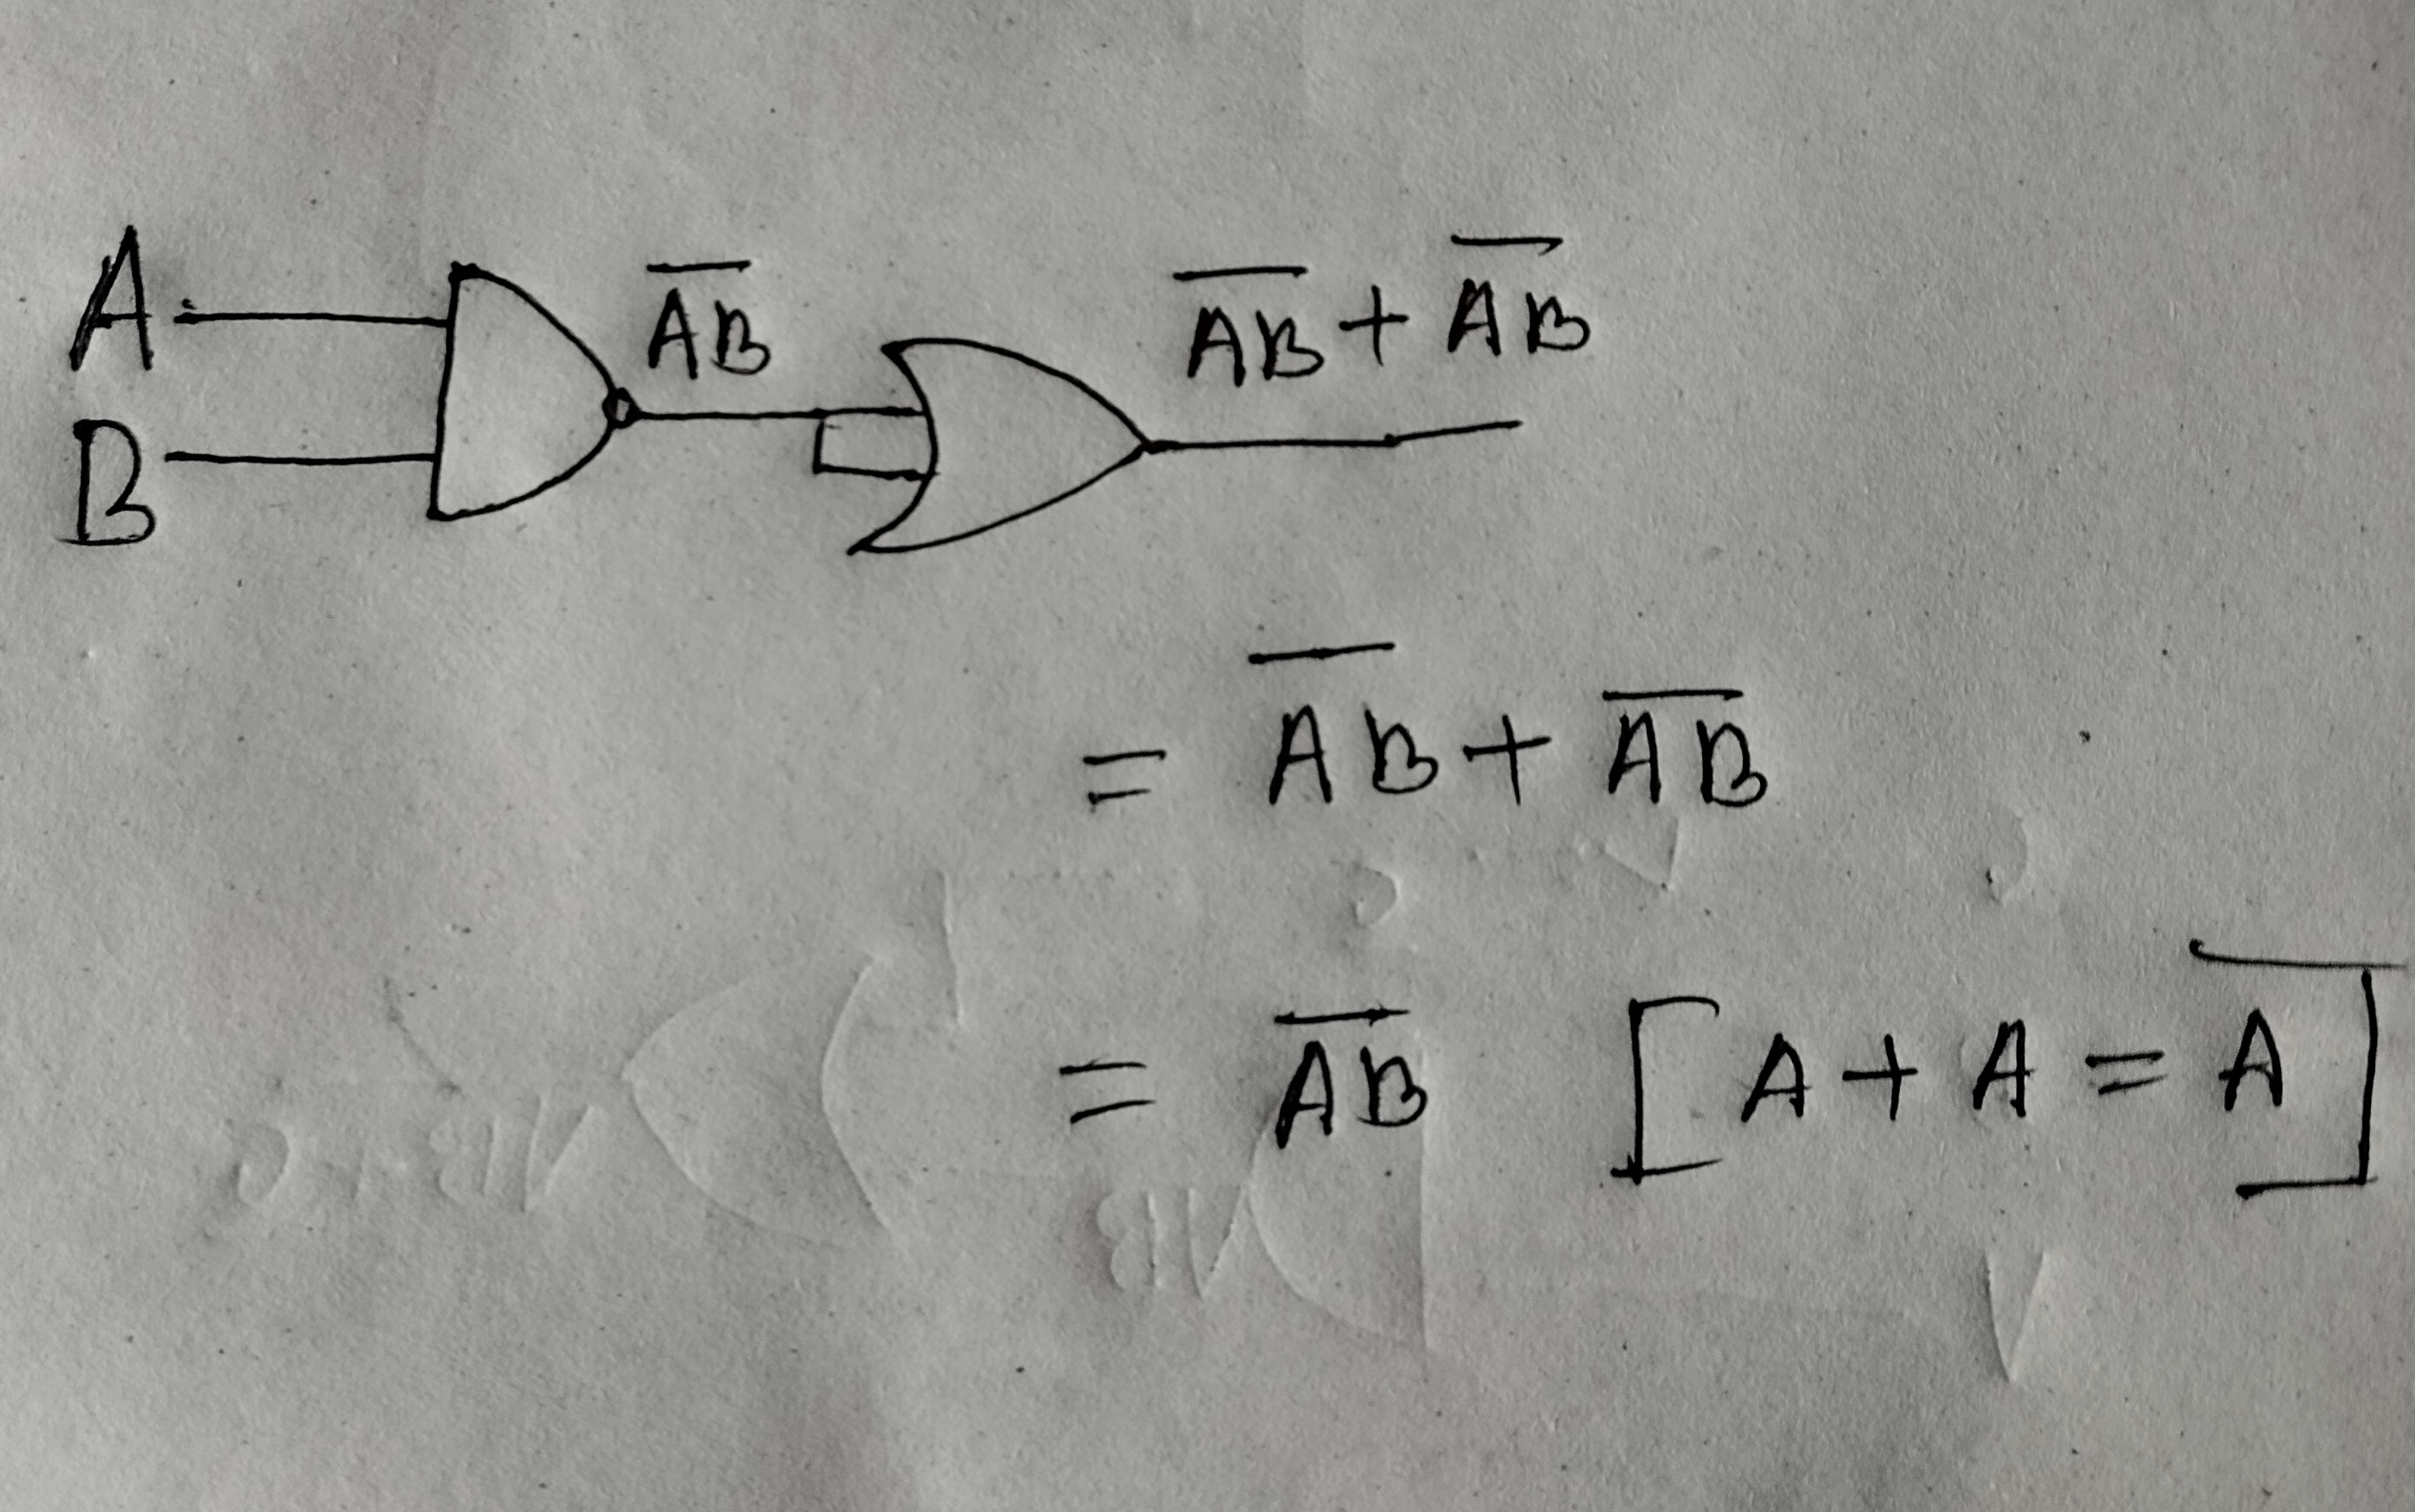 A
B
A̅B̅
A̅B̅ + A̅B̅
= A̅B̅ + A̅B̅
= A̅B̅ [A + A = A̅]